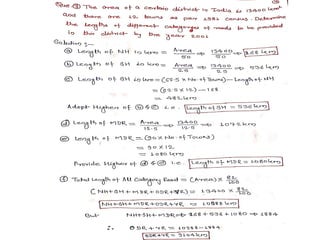 Que ③ The area of a certain district in India is 13400 km²
and there are 12 towns as per 1981 census. Determine
the lengths of different categories of roads to be provided
in this district by the year 2001
Solution :-
ⓐ Length of NH in km = Area/50 ⇒ 13400/50 ⇒ 268 km
ⓑ Length of SH in km = Area/25 ⇒ 13400/25 ⇒ 536 km
ⓒ Length of SH in km = (62.5 × No. of towns) - Length of NH
= (62.5 × 12) - 268
= 482 km
Adopt Higher of ⓑ & ⓒ i.e. Length of SH = 536 km
ⓓ Length of MDR = Area/12.5 ⇒ 13400/12.5 ⇒ 1072 km
ⓔ Length of MDR = (90 × No. of Towns)
= 90 × 12
= 1080 km
Provide Higher of ⓓ & ⓔ i.e. Length of MDR = 1080 km
ⓕ Total Length of All Category Road = (Area) × 82/100
(NH + SH + MDR + ODR + VR) = 13400 × 82/100
NH + SH + MDR + ODR + VR = 10988 km
But NH + SH + MDR ⇒ 268 + 536 + 1080 ⇒ 1884
∴ ODR + VR = 10988 - 1884
ODR + VR = 9104 km